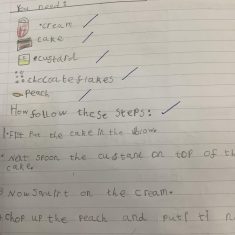 You need:
• cream
cake
• custard
chocoate flakes
peach
How follow these steps:
put the cake in the
Next spoon the custard on top of th
cake.
Now squirt on the cream.
chop up the peach and put